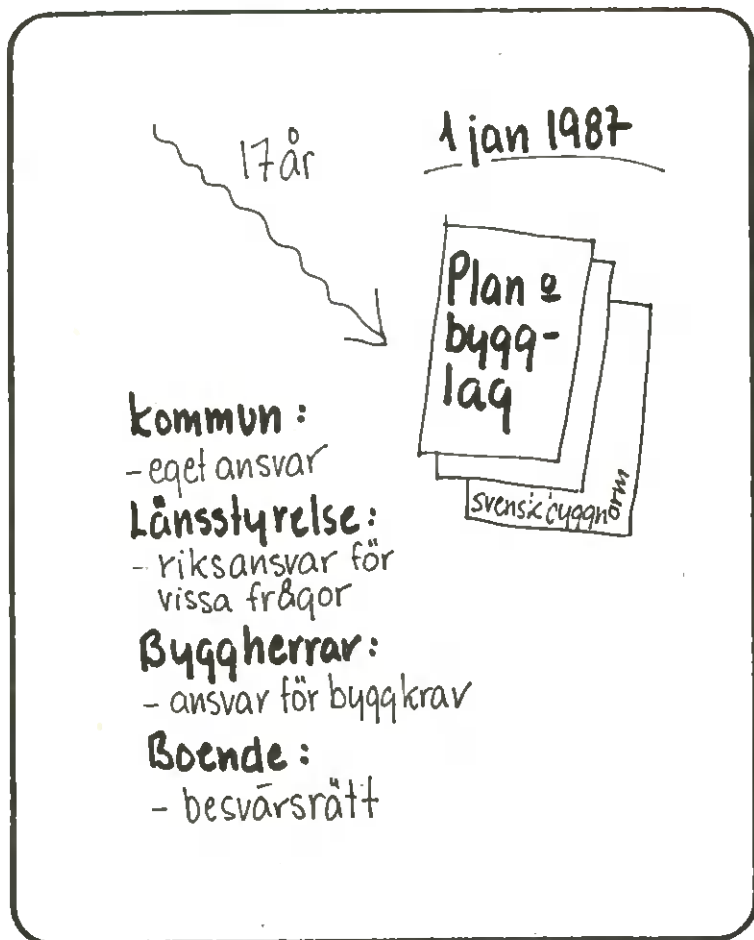 17 år
1 jan 1987
Plan o
bygg-
lag
svensk byggnorm
kommun:
- eget ansvar
Länsstyrelse:
- riksansvar för
vissa frågor
Byggherrar:
- ansvar för byggkrav
Boende:
- besvärsrätt